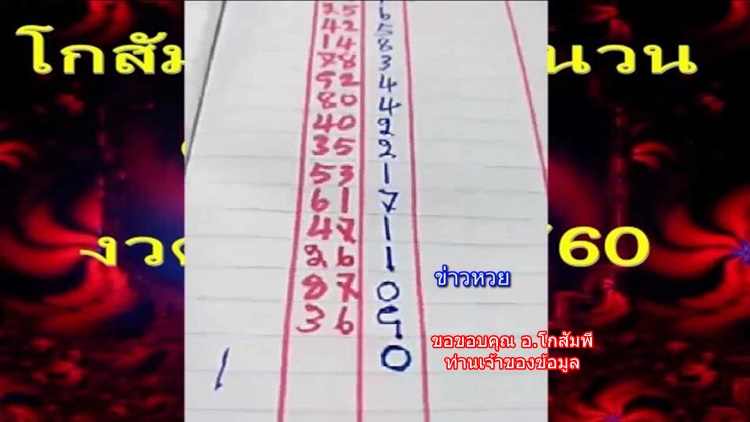 โกสัม นวน
25 6
42 5
14 8
78 3
92 4
80 4
40 2
35 2
53 1
61 7
47 1
26 1
87 0
36 9
0
งวด 60
ข่าวหวย
ขอขอบคุณ อ.โกสัมพี
ท่านเจ้าของข้อมูล